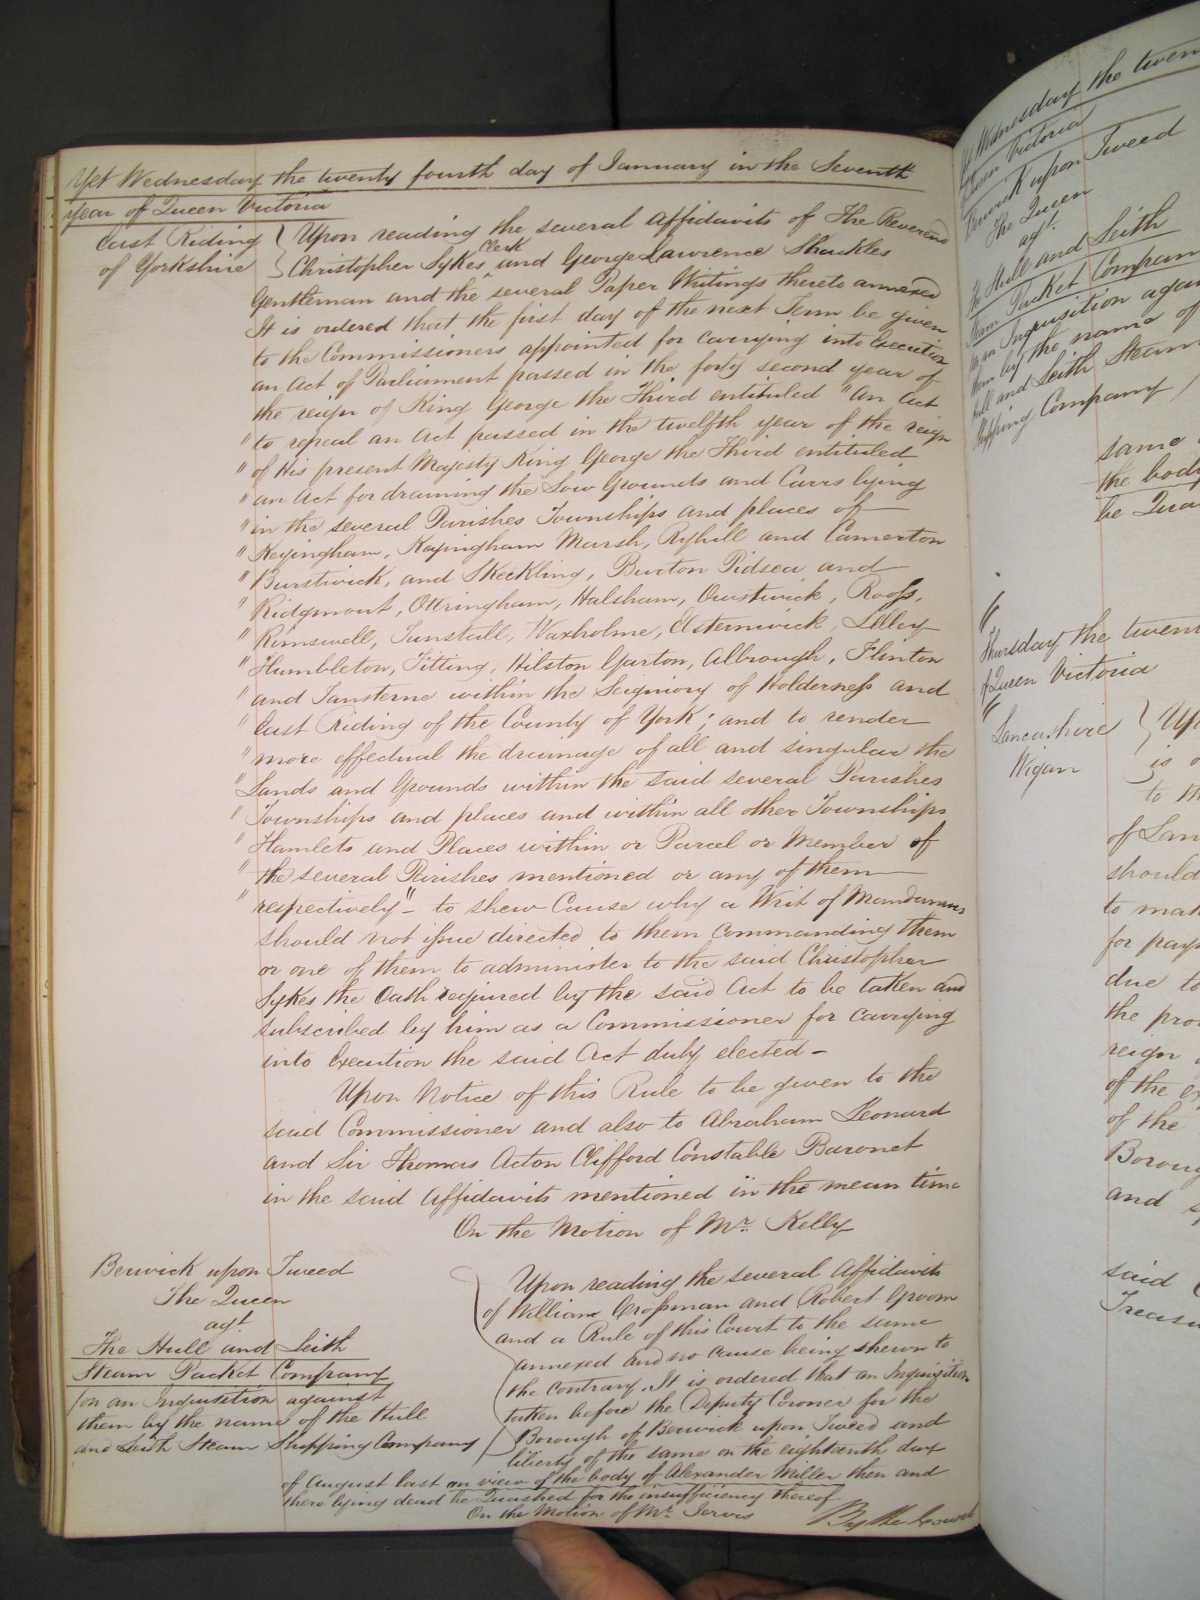 Yet Wednesday the twenty fourth day of January in the Seventh
year of Queen Victoria
East Riding
of Yorkshire
Upon reading the several Affidavits of The Reverend
Christopher Sykes Clerk and George Lawrence Shackles
Gentleman and the several Paper Writings thereto annexed
It is ordered that the first day of the next Term be given
to the Commissioners appointed for carrying into Execution
an Act of Parliament passed in the forty second year of
the reign of King George the Third entituled "An Act
" to repeal an Act passed in the twelfth year of the reign
" of His present Majesty King George the Third entituled
" an Act for draining the Low Grounds and Carrs lying
" in the several Parishes Townships and places of
" Keyingham, Keyingham Marsh, Ryhill and Camerton
" Burstwick, and Skeckling, Burton Pidsea and
" Ridgmont, Ottringham, Halsham, Owstwick, Rooss,
" Rimswell, Tunstall, Waxholme, Elsternwick, Lelley
" Humbleton, Fitting, Hilston Garton, Albrough, Flinton
" and Tansterne within the Seigniory of Holderness and
" East Riding of the County of York; and to render
" more effectual the drainage of all and singular the
" Lands and Grounds within the said several Parishes
" Townships and places and within all other Townships
" Hamlets and Places within or Parcel or Member of
" the several Parishes mentioned or any of them
" respectively" - to shew Cause why a Writ of Mandamus
should not issue directed to them Commanding them
or one of them to administer to the said Christopher
Sykes the Oath required by the said Act to be taken and
subscribed by him as a Commissioner for carrying
into Execution the said Act duly elected -
Upon Notice of this Rule to be given to the
said Commissioner and also to Abraham Leonard
and Sir Thomas Aston Clifford Constable Baronet
in the said Affidavits mentioned in the mean time
On the Motion of Mr. Kelly
Berwick upon Tweed
The Queen
agt
The Hull and Leith
Steam Packet Company
on an Inquisition against
them by the name of the Hull
and Leith Steam Shipping Company
Upon reading the several Affidavits
of William Crossman and Robert Groom
and a Rule of this Court to the same
annexed and no cause being shewn to
the contrary. It is ordered that an Inquisition
taken before the Deputy Coroner for the
Borough of Berwick upon Tweed and
liberty of the same on the eighteenth day
of August last on view of the body of Alexander Miller then and
there lying dead be Quashed for the insufficiency thereof
On the Motion of Mr. Jervis
By the Court
Wednesday the twen
Queen Victoria
Berwick upon Tweed
The Queen
agt.
The Hull and Leith
Steam Packet Compan
on an Inquisition again
them by the name of
Hull and Leith Steam
Shipping Company
same
the body
be Qua
Thursday the twent
of Queen Victoria
Lancashire
Wigan
Up
is o
to th
of Lan
should
to mak
for pay
due to
the pro
reign
of the
of the
Boroug
and s
said
Treasu